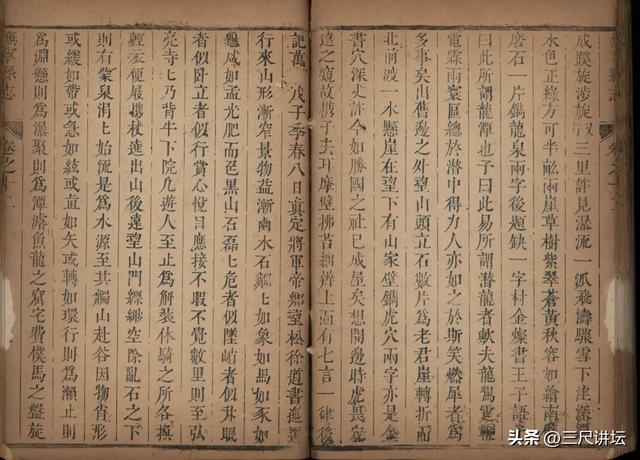 成蹊旋涉旋馭三里許見湍流一派飛濤驟雪下注潭
水色正綠方可半畝兩崖草樹紫翠蒼黃秋容如繪南
磨石一片鐫龍泉兩字後題缺一字村金燦書王子語
曰此所謂龍潭也予曰此易所謂潛龍者歟夫龍駕霆鞭
電霖雨寰區總於潛中得力人亦如之於斯笑燃犀者為
多事矣出舊邊之外望山頭立石數片為老君崖轉折而
北前渡一木懸崖在望下有山家壁鐫虎穴兩字亦是金
書穴深丈許今如勝國之社已成屋矣想開邊時虎畏
遠之窟故攜子去耳摩壁拂苔細辨上面有七言一律後
記萬 戊子季春八日真定將軍帝鄉望松徐道書
行來山形漸窄景物益漸幽水石觸〻如象如馬如豕如
龜咸如孟光肥而色黑山石磊〻危者似墜峭者似升眠
者似臥立者似行賞心悅目應接不暇不覺數里則至弘
亮寺〻乃背牛下院凡遊人至止為解裝休騎之所各換
輕衣便屣攜杖遶出山後遠望山門縹緲空際亂石之下
則有蒙泉涓〻始流是為水源至其觸山赴谷因物肖形
或緩如帶或急如絃或直如矢或轉如環行則為瀨止則
為淵懸則為瀑聚則為潭濬魚龍之窟宅費僕馬之盤旋
撫寧縣志 卷之十二
头条 @三尺讲坛